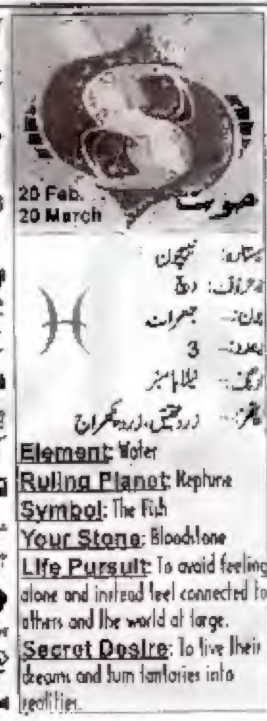 20 Feb.
20 March
حوت
ستارہ: نیپچون
حروف: د، چ
دن:- جمعرات
عدد:- 3
رنگ:- نیلا، سبز
پتھر:- زرد عقیق، زرد پکھراج
Element: Water
Ruling Planet: Neptune
Symbol: The Fish
Your Stone: Bloodstone
Life Pursuit: To avoid feeling
alone and instead feel connected to
others and the world at large.
Secret Desire: To live their
dreams and turn fantasies into
realities.